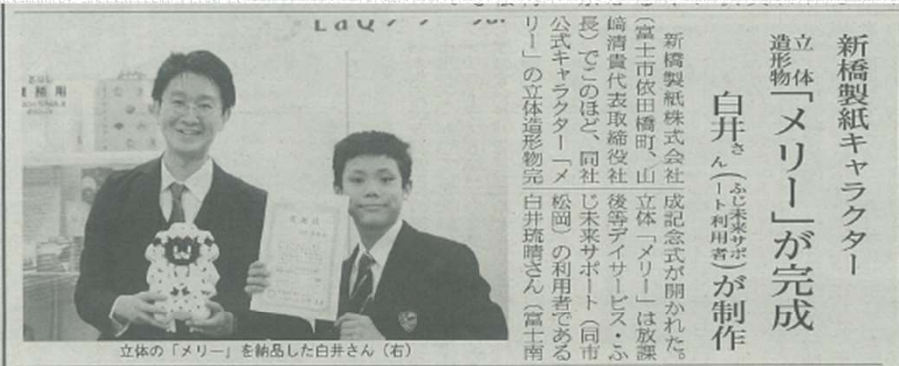 新橋製紙キャラクター
立体
造形物
「メリー」が完成
白井さん
(ふじ未来サポ
ート利用者)
が制作
新橋製紙株式会社
(富士市依田橋町、山
﨑清貴代表取締役社
長)でこのほど、同社
公式キャラクター「メ
リー」の立体造形物完
成記念式が開かれた。
立体「メリー」は放課
後等デイサービス・ふ
じ未来サポート(同市
松岡)の利用者である
白井琉晴さん(富士南
立体の「メリー」を納品した白井さん(右)
LaQ